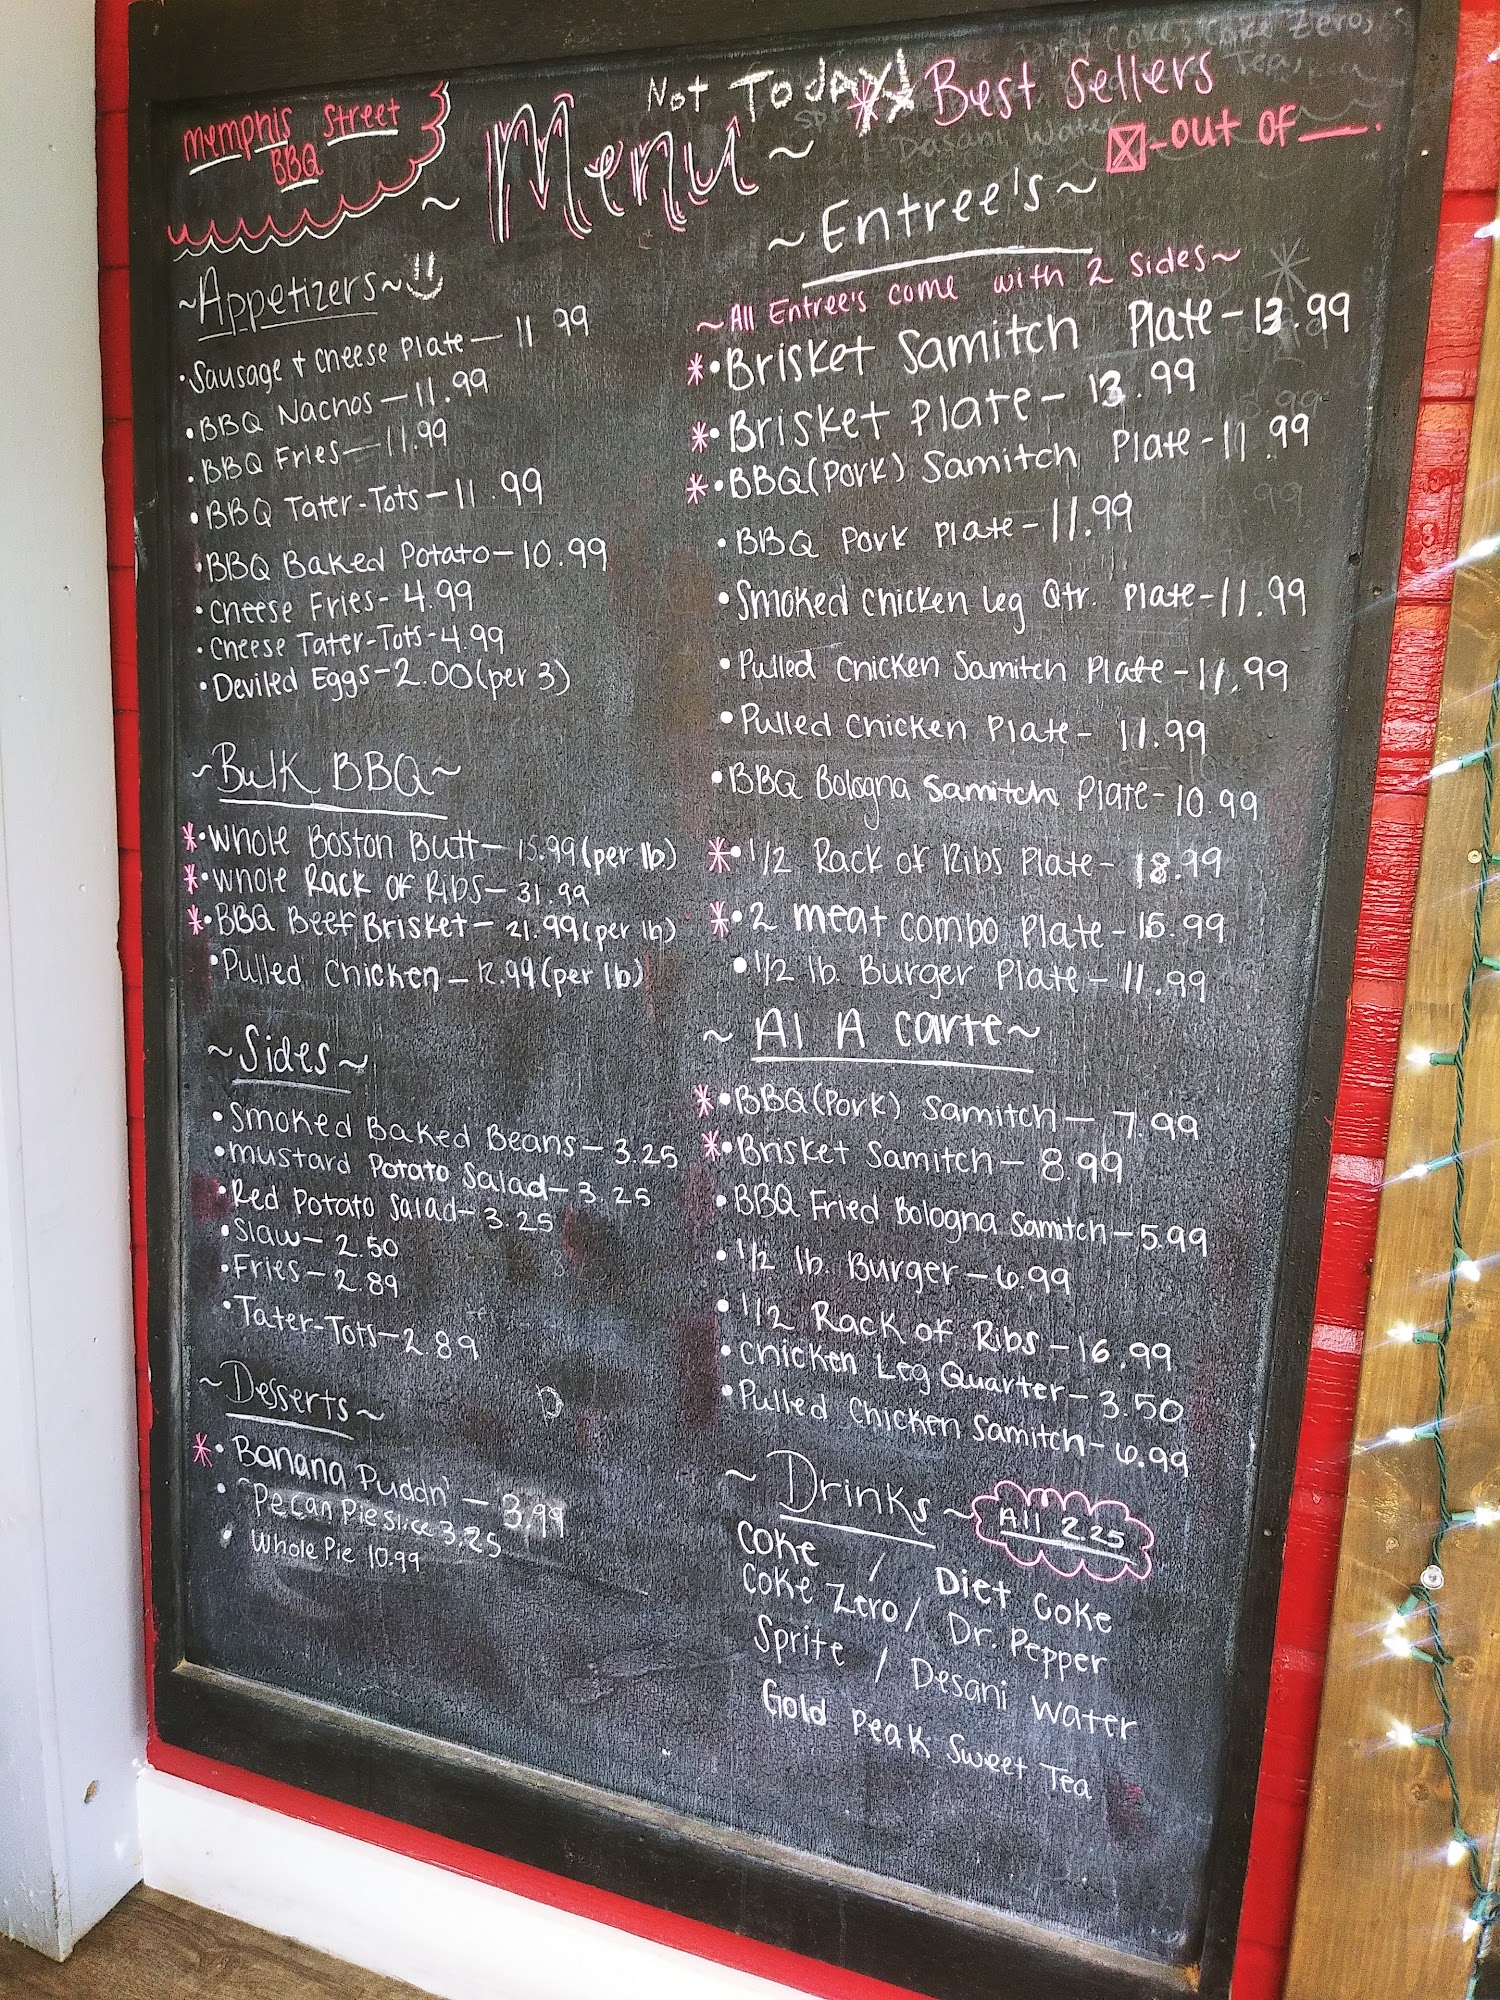 Memphis Street
BBQ
Not Today!
~ Menu ~
* Best Sellers
☒-out of __.
~Appetizers~
• Sausage + Cheese Plate — 11.99
• BBQ Nachos — 11.99
• BBQ Fries — 11.99
• BBQ Tater-Tots — 11.99
• BBQ Baked Potato — 10.99
• Cheese Fries - 4.99
• Cheese Tater-Tots - 4.99
• Deviled Eggs - 2.00 (per 3)
~Bulk BBQ~
*• Whole Boston Butt — 15.99 (per lb)
*• Whole Rack of Ribs — 31.99
*• BBQ Beef Brisket — 21.99 (per lb)
• Pulled Chicken — 12.99 (per lb)
~Sides~
• Smoked Baked Beans — 3.25
• Mustard Potato Salad — 3.25
• Red Potato Salad — 3.25
• Slaw — 2.50
• Fries — 2.89
• Tater-Tots — 2.89
~Desserts~
*• Banana Puddn' — 3.99
• Pecan Pie Slice 3.25
Whole Pie 10.99
~Entree's~
~All Entree's come with 2 sides~
*• Brisket Samitch Plate - 13.99
*• Brisket Plate - 13.99
*• BBQ (Pork) Samitch Plate - 11.99
• BBQ Pork Plate - 11.99
• Smoked Chicken Leg Qtr. Plate - 11.99
• Pulled Chicken Samitch Plate - 11.99
• Pulled Chicken Plate - 11.99
• BBQ Bologna Samitch Plate - 10.99
*• 1/2 Rack of Ribs Plate - 18.99
*• 2 meat combo Plate - 15.99
• 1/2 lb. Burger Plate - 11.99
~ Al A Carte~
*• BBQ (Pork) Samitch — 7.99
*• Brisket Samitch — 8.99
• BBQ Fried Bologna Samitch — 5.99
• 1/2 lb. Burger — 6.99
• 1/2 Rack of Ribs — 16.99
• Chicken Leg Quarter — 3.50
• Pulled Chicken Samitch — 6.99
~ Drinks ~ All 2.25
Coke / Diet Coke
Coke Zero / Dr. Pepper
Sprite / Desani Water
Gold Peak Sweet Tea